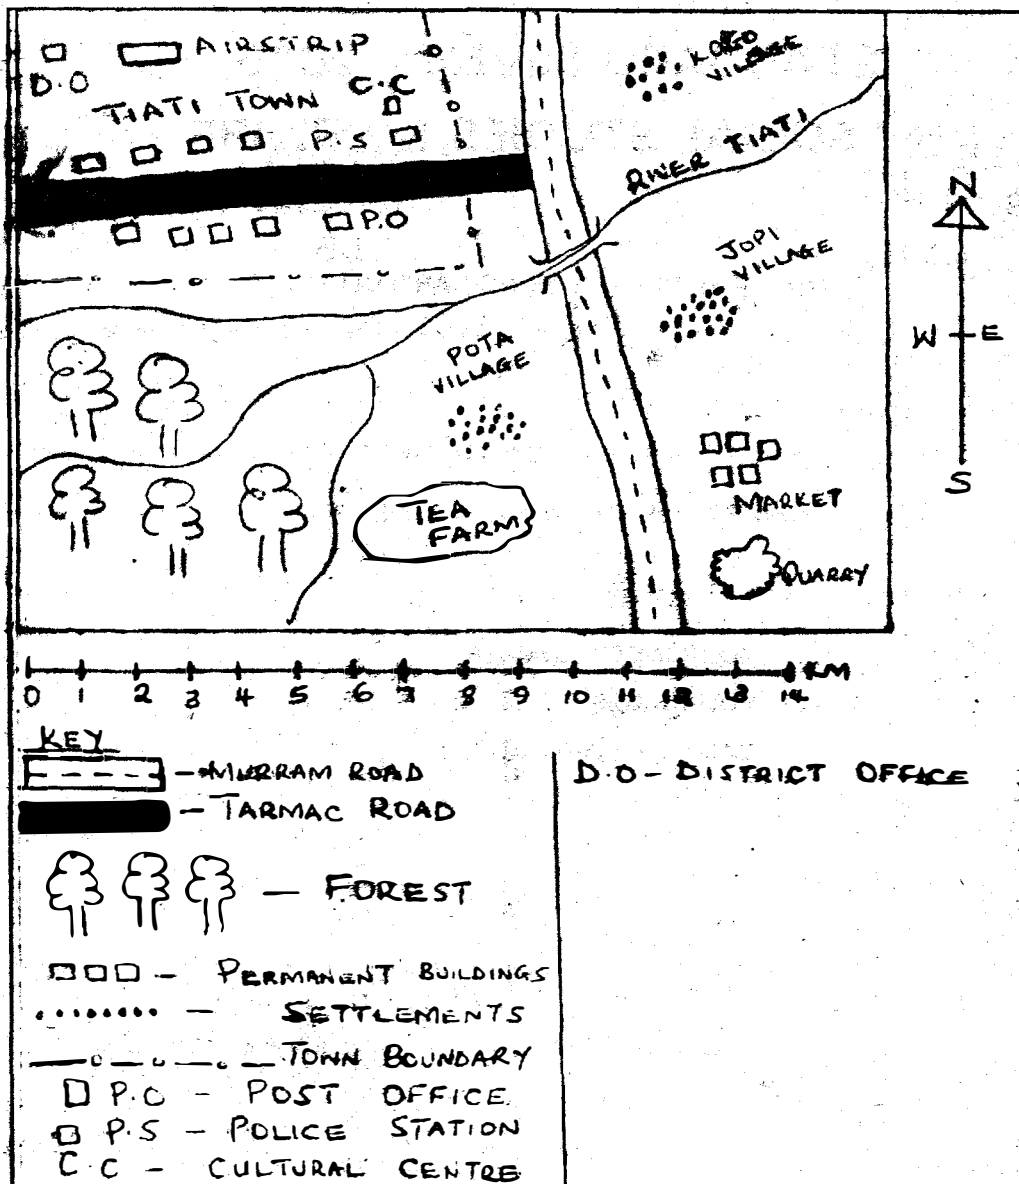 AIRSTRIP
D.O
TIATI TOWN
C.C
P.S
P.O
KOKO
VILLAGE
RIVER TIATI
JOPI
VILLAGE
POTA
VILLAGE
TEA
FARM
MARKET
QUARRY
N
W E
S
0 1 2 3 4 5 6 7 8 9 10 11 12 13 14 KM
KEY
- MURRAM ROAD
- TARMAC ROAD
- FOREST
- PERMANENT BUILDINGS
- SETTLEMENTS
TOWN BOUNDARY
P.O - POST OFFICE
P.S - POLICE STATION
C.C - CULTURAL CENTRE
D.O - DISTRICT OFFICE